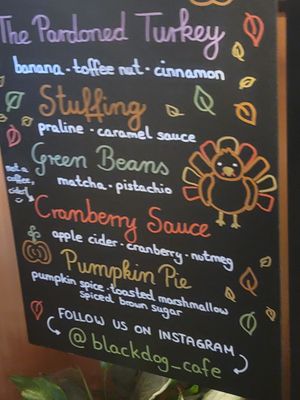 The Pardoned Turkey
banana · toffee nut · cinnamon
Stuffing
praline · caramel sauce
Green Beans
matcha · pistachio
not a
coffee,
cider!
Cranberry Sauce
apple cider · cranberry · nutmeg
Pumpkin Pie
pumpkin spice · toasted marshmallow
spiced brown sugar
FOLLOW US ON INSTAGRAM
@blackdog_cafe